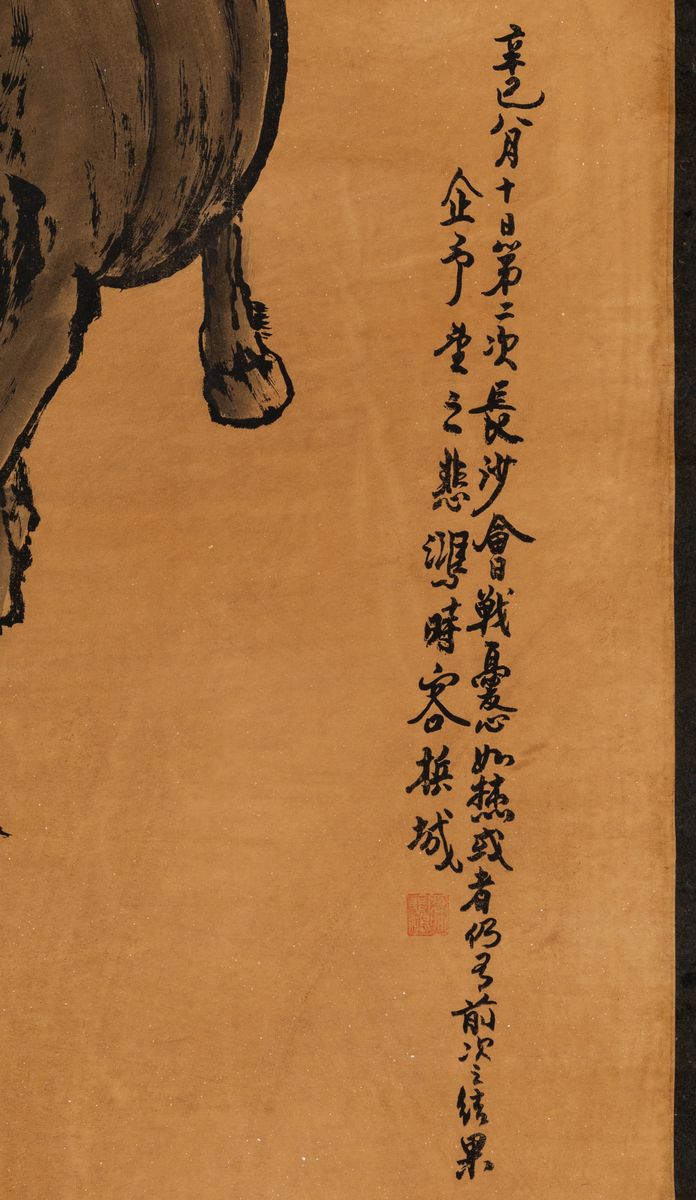 辛巳八月十日第二次長沙會戰憂心如焚或者仍有前次之結果
企予望之悲鴻時客檳城